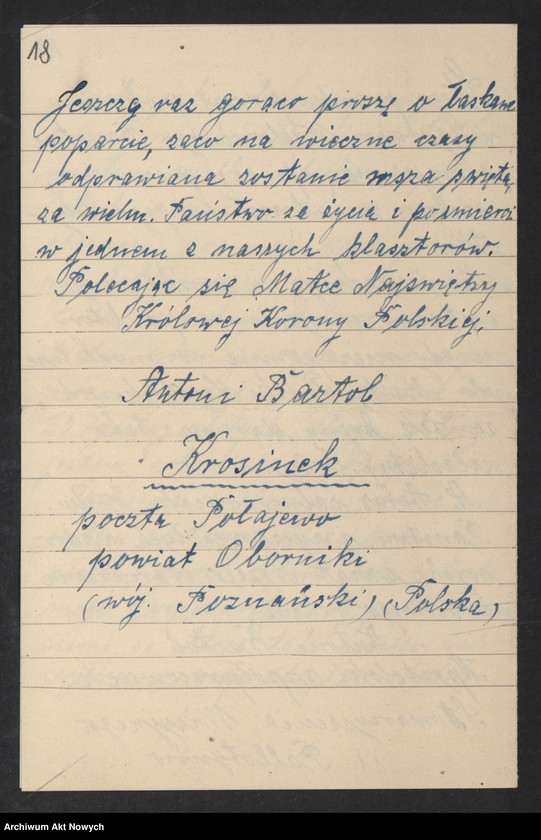 18
Jeszczę raz gorąco proszę o łaskawe
poparcie, zaco na wieczne czasy
odprawiana zostanie msza świętą,
za wielm. Państwo za życia i pośmierci
w jednem z naszych klasztorów.
Polecając się Matce Najświętszy
Królowej Korony Polskiej,
Antoni Bartol
Krosinek
poczta Połajewo
powiat Oborniki
(wój. Poznański) (Polska)
Archiwum Akt Nowych